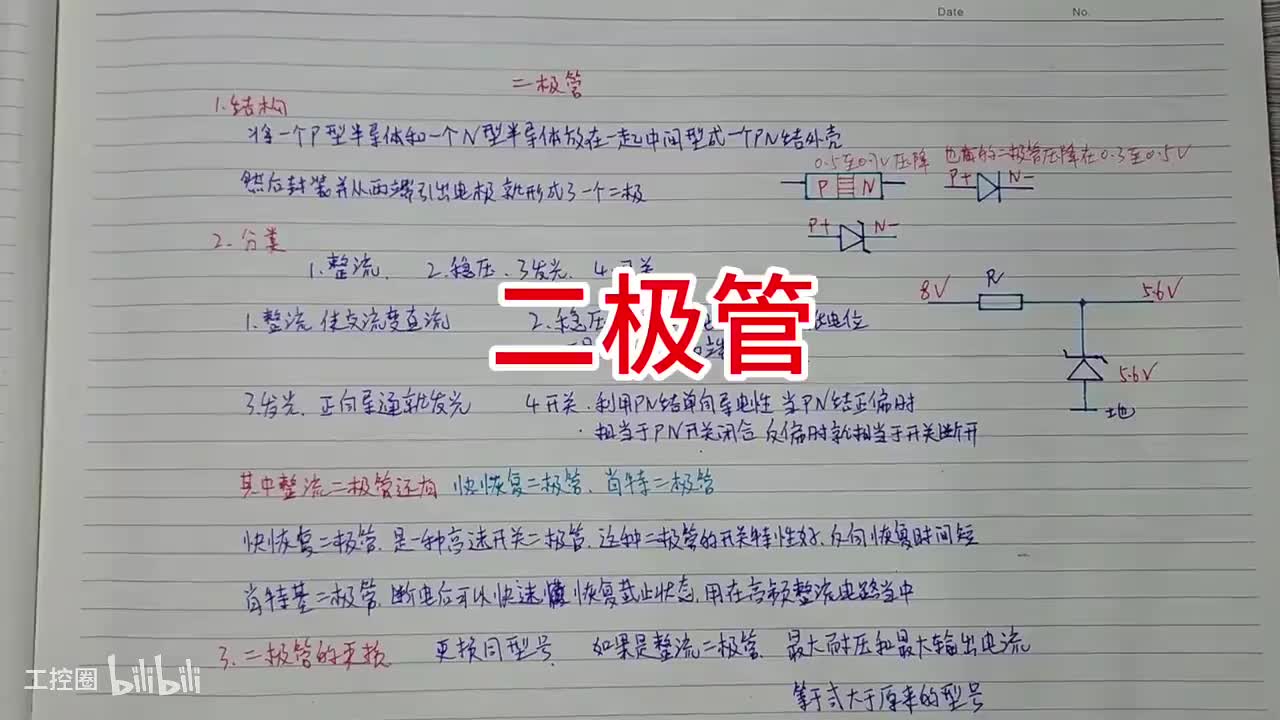 Date No.
二极管
1.结构
将一个P型半导体和一个N型半导体放在一起中间型式一个PN结外壳
0.5至0.7V压降
二极管压降在0.3至0.5V
P N
P+ N-
然后封装并从两端引出电极就形式了一个二极
P+ N-
2.分类
1.整流、 2.稳压、3发光、4
8V R 5.6V
二极管
1.整流 使交流变直流
2.稳压
电位
5.6V
地
3.发光、正向导通就发光
4开关.利用PN结单向导电性 当PN结正偏时
·相当于PN开关闭合 反偏时就相当于开关断开
其中整流二极管还有 快恢复二极管、肖特二极管
快恢复二极管、是一种高速开关二极管、这种二极管的开关特性好、反向恢复时间短
肖特基二极管、断电后可以快速恢复截止状态、用在高频整流电路当中
3.二极管的更换 更换同型号、如果是整流二极管、最大耐压和最大输出电流
等于或大于原来的型号
工控圈 bilibili